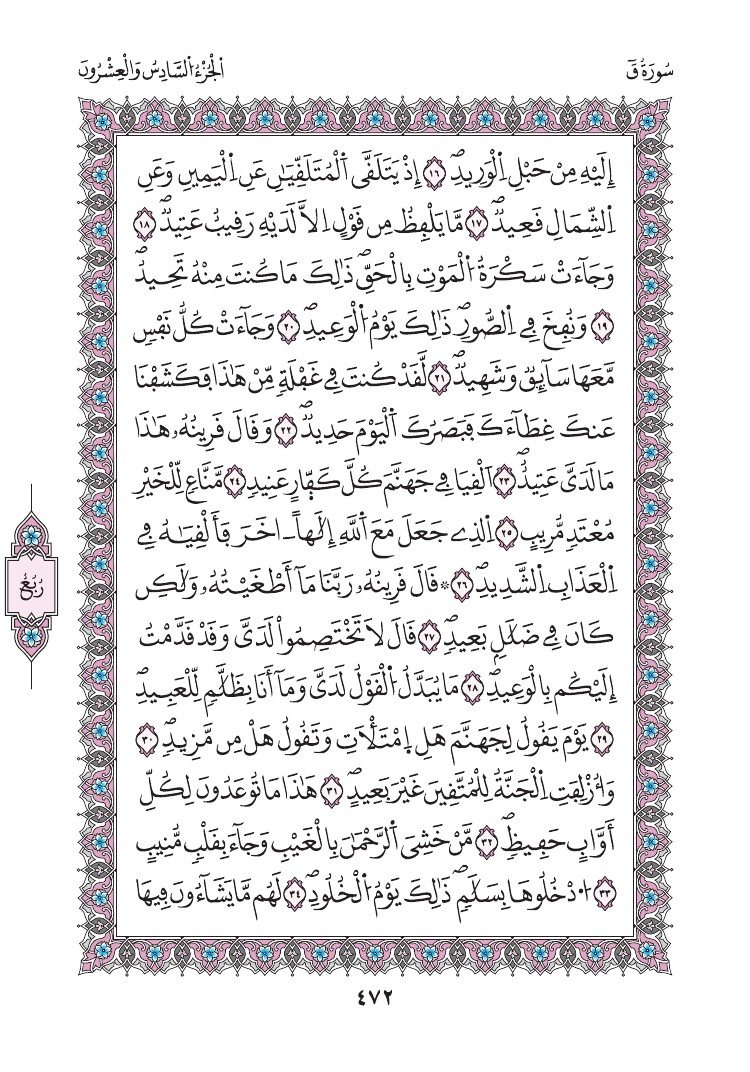 سُورَةُ قَ
اَلْجُزْءُ اُلسَّادِسُ وَالْعِشْرُونَ
إِلَيْهِ مِنْ حَبْلِ اِلْوَرِيدِۖ ١٦ إِذْ يَتَلَقَّى اَلْمُتَلَقِّيَٰنِ عَنِ اِلْيَمِينِ وَعَنِ
اِلشِّمَالِ قَعِيدٞۖ ١٧ مَّا يَلْفِظُ مِن قَوْلٍ اِلاَّ لَدَيْهِ رَقِيبٌ عَتِيدٞۖ ١٨
وَجَآءَتْ سَكْرَةُ اُلْمَوْتِ بِالْحَقِّۖ ذَٰلِكَ مَا كُنتَ مِنْهُ تَحِيدُۖ
١٩ وَنُفِخَ فِے اِلصُّورِۖ ذَٰلِكَ يَوْمُ اُلْوَعِيدِۖ ٢٠ وَجَآءَتْ كُلُّ نَفْسٖ
مَّعَهَا سَآئِقٞ وَشَهِيدٞۖ ٢١ لَّقَدْ كُنتَ فِے غَفْلَةٖ مِّنْ هَٰذَا فَكَشَفْنَا
عَنكَ غِطَآءَكَ فَبَصَرُكَ اَلْيَوْمَ حَدِيدٞۖ ٢٢ وَقَالَ قَرِينُهُۥ هَٰذَا
مَا لَدَىَّ عَتِيدٌۖ ٢٣ اَلْقِيَا فِے جَهَنَّمَ كُلَّ كَفّ۪ارٍ عَنِيدٖ ٢٤ مَّنَّاعٖ لِّلْخَيْرِ
مُعْتَدٖ مُّرِيبٍ ٢٥ اِلذِے جَعَلَ مَعَ اَللَّهِ إِلَٰهاً ـ اخَرَ فَأَلْقِيَٰهُ فِے
اِلْعَذَابِ اِلشَّدِيدِۖ ٢٦ ۞ قَالَ قَرِينُهُۥ رَبَّنَا مَآ أَطْغَيْتُهُۥ وَلَٰكِن
كَانَ فِے ضَلَٰلِۢ بَعِيدٖۖ ٢٧ قَالَ لَا تَخْتَصِمُواْ لَدَىَّ وَقَدْ قَدَّمْتُ
إِلَيْكُم بِالْوَعِيدِۖ ٢٨ مَا يُبَدَّلُ اُلْقَوْلُ لَدَىَّ وَمَآ أَنَا بِظَلَّٰمٖ لِّلْعَبِيدِۖ
٢٩ يَوْمَ يَقُولُ لِجَهَنَّمَ هَلِ اِ۪مْتَلَأْتِ وَتَقُولُ هَلْ مِن مَّزِيدٖۖ ٣٠
وَأُزْلِفَتِ اِلْجَنَّةُ لِلْمُتَّقِينَ غَيْرَ بَعِيدٍۖ ٣١ هَٰذَا مَا تُوعَدُونَ لِكُلِّ
أَوَّابٍ حَفِيظٖۖ ٣٢ مَّنْ خَشِىَ اَلرَّحْمَٰنَ بِالْغَيْبِ وَجَآءَ بِقَلْبٖ مُّنِيبٍ
٣٣ ا۟دْخُلُوهَا بِسَلَٰمٖۖ ذَٰلِكَ يَوْمُ اُلْخُلُودِۖ ٣٤ لَهُم مَّا يَشَآءُونَ فِيهَا
رُبُعُ
٤٧٢